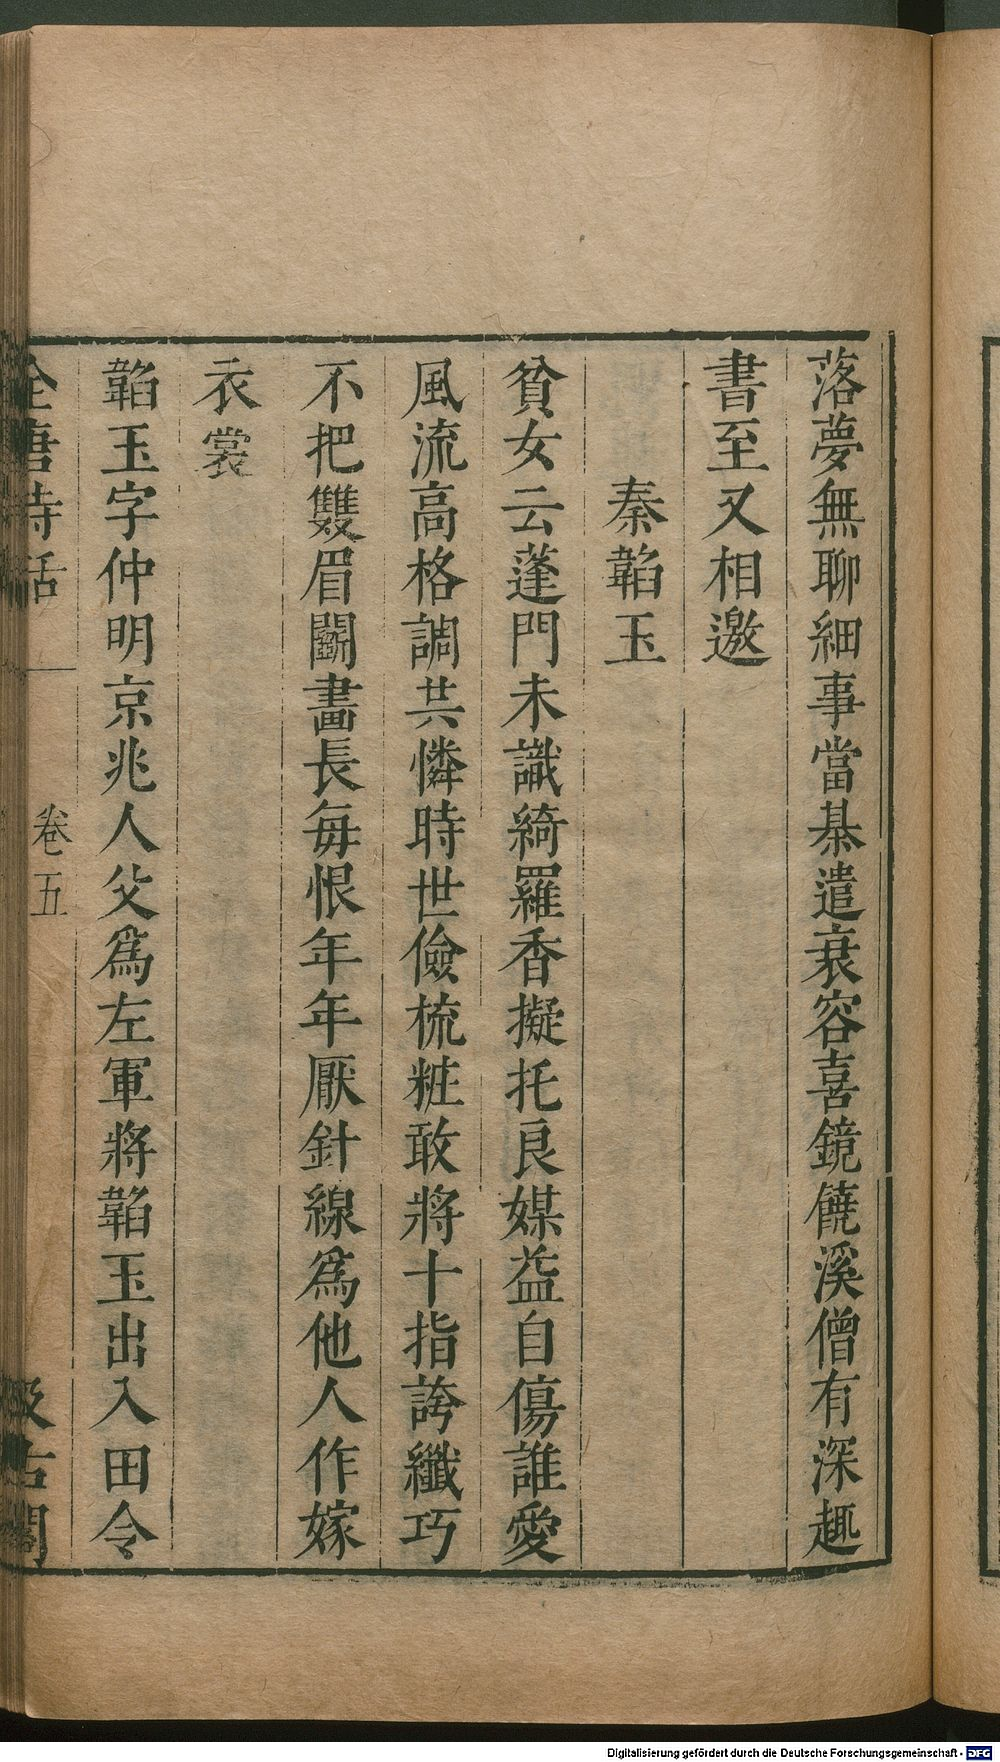 落夢無聊細事當棊遣衰容喜鏡饒溪僧有深趣
書至又相邀
秦韜玉
貧女云蓬門未識綺羅香擬托良媒益自傷誰愛
風流高格調共憐時世儉梳粧敢將十指誇纖巧
不把雙眉鬭畫長每恨年年厭針線爲他人作嫁
衣裳
韜玉字仲明京兆人父爲左軍將韜玉出入田令
全唐詩話 卷五 汲古閣
Digitalisierung gefördert durch die Deutsche Forschungsgemeinschaft - DFG